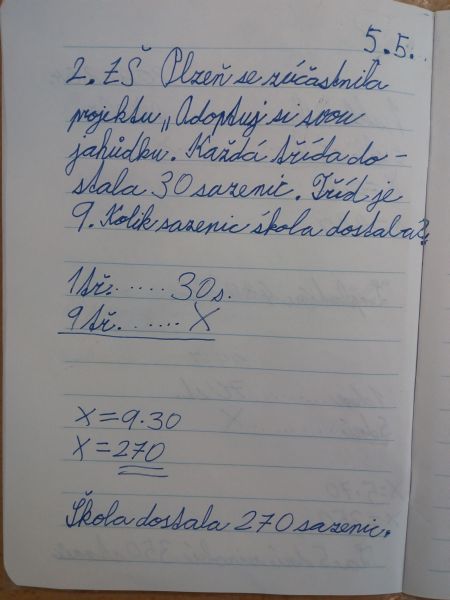 5.5.
2. ZŠ Plzeň se zúčastnila
projektu „Adoptuj si svou
jahůdku. Každá třída do-
stala 30 sazenic. Tříd je
9. Kolik sazenic škola dostala?
1 tř. ..... 30 s.
9 tř. ...... X
X = 9.30
X = 270
Škola dostala 270 sazenic.